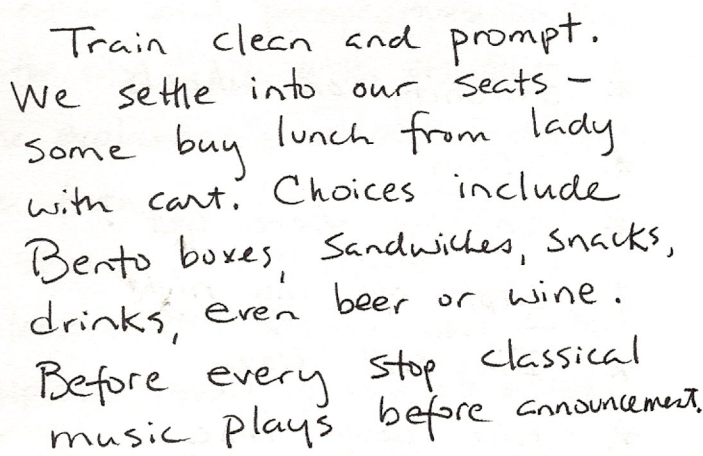 Train clean and prompt.
We settle into our seats –
some buy lunch from lady
with cart. Choices include
Bento boxes, Sandwiches, snacks,
drinks, even beer or wine.
Before every stop classical
music plays before announcement.